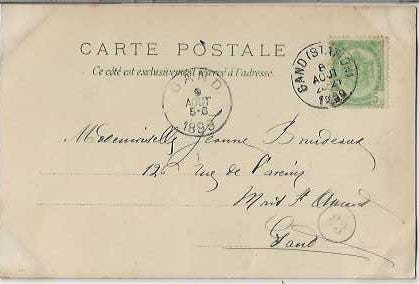 CARTE POSTALE
Ce côté est exclusivement réservé à l'adresse.
GAND (ST. PIERRE)
8
AOUT
1899
GAND
9
AOUT
5-6
1899
5
Mademoiselle Jeanne Bordeaux
12 Rue de
Mont St Amand
Gand